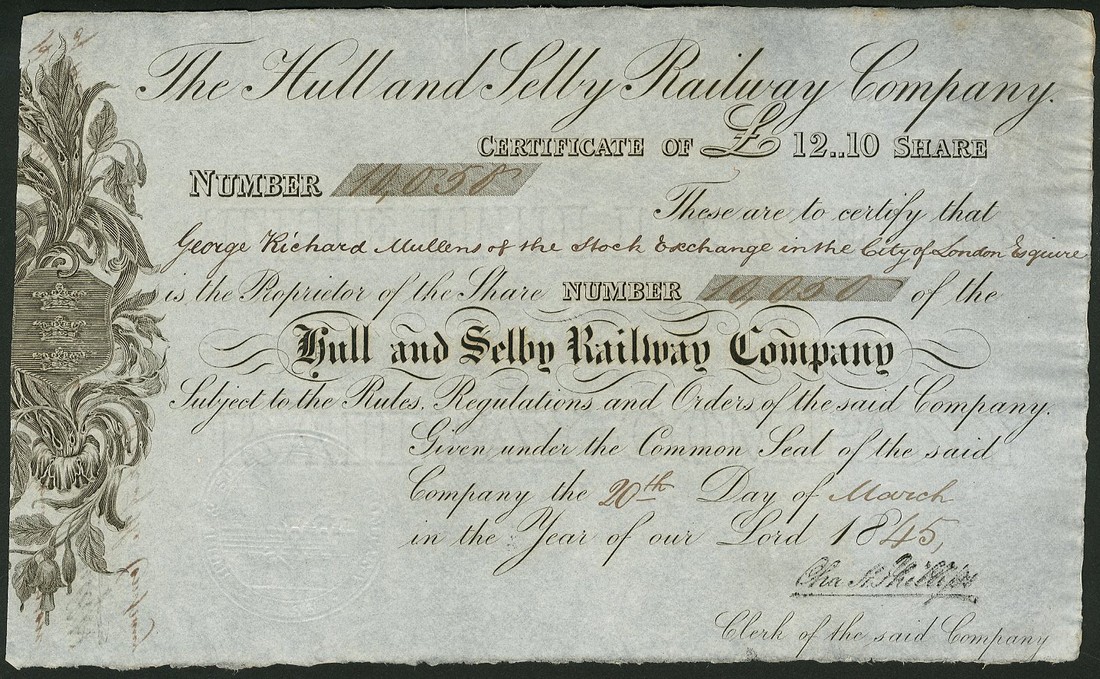 The Hull and Selby Railway Company.
CERTIFICATE OF £ 12..10 SHARE
NUMBER 10,050
These are to certify that
George Richard Mullens of the Stock Exchange in the City of London Esquire
is the Proprietor of the Share NUMBER 10,050 of the
Hull and Selby Railway Company
Subject to the Rules, Regulations and Orders of the said Company.
Given under the Common Seal of the said
Company the 20th Day of March
in the Year of our Lord 1845,
Cha. H. Phillips
Clerk of the said Company